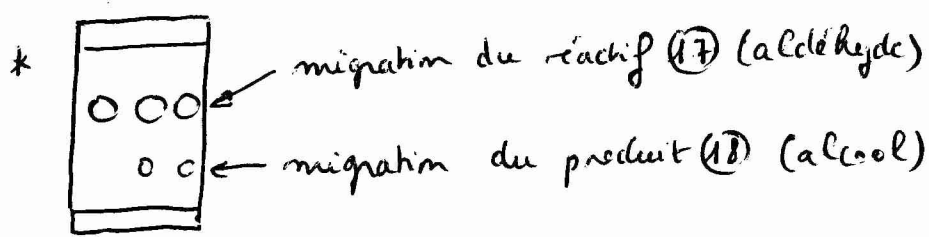 * migration du réactif 17 (aldéhyde)
migration du produit 18 (alcool)